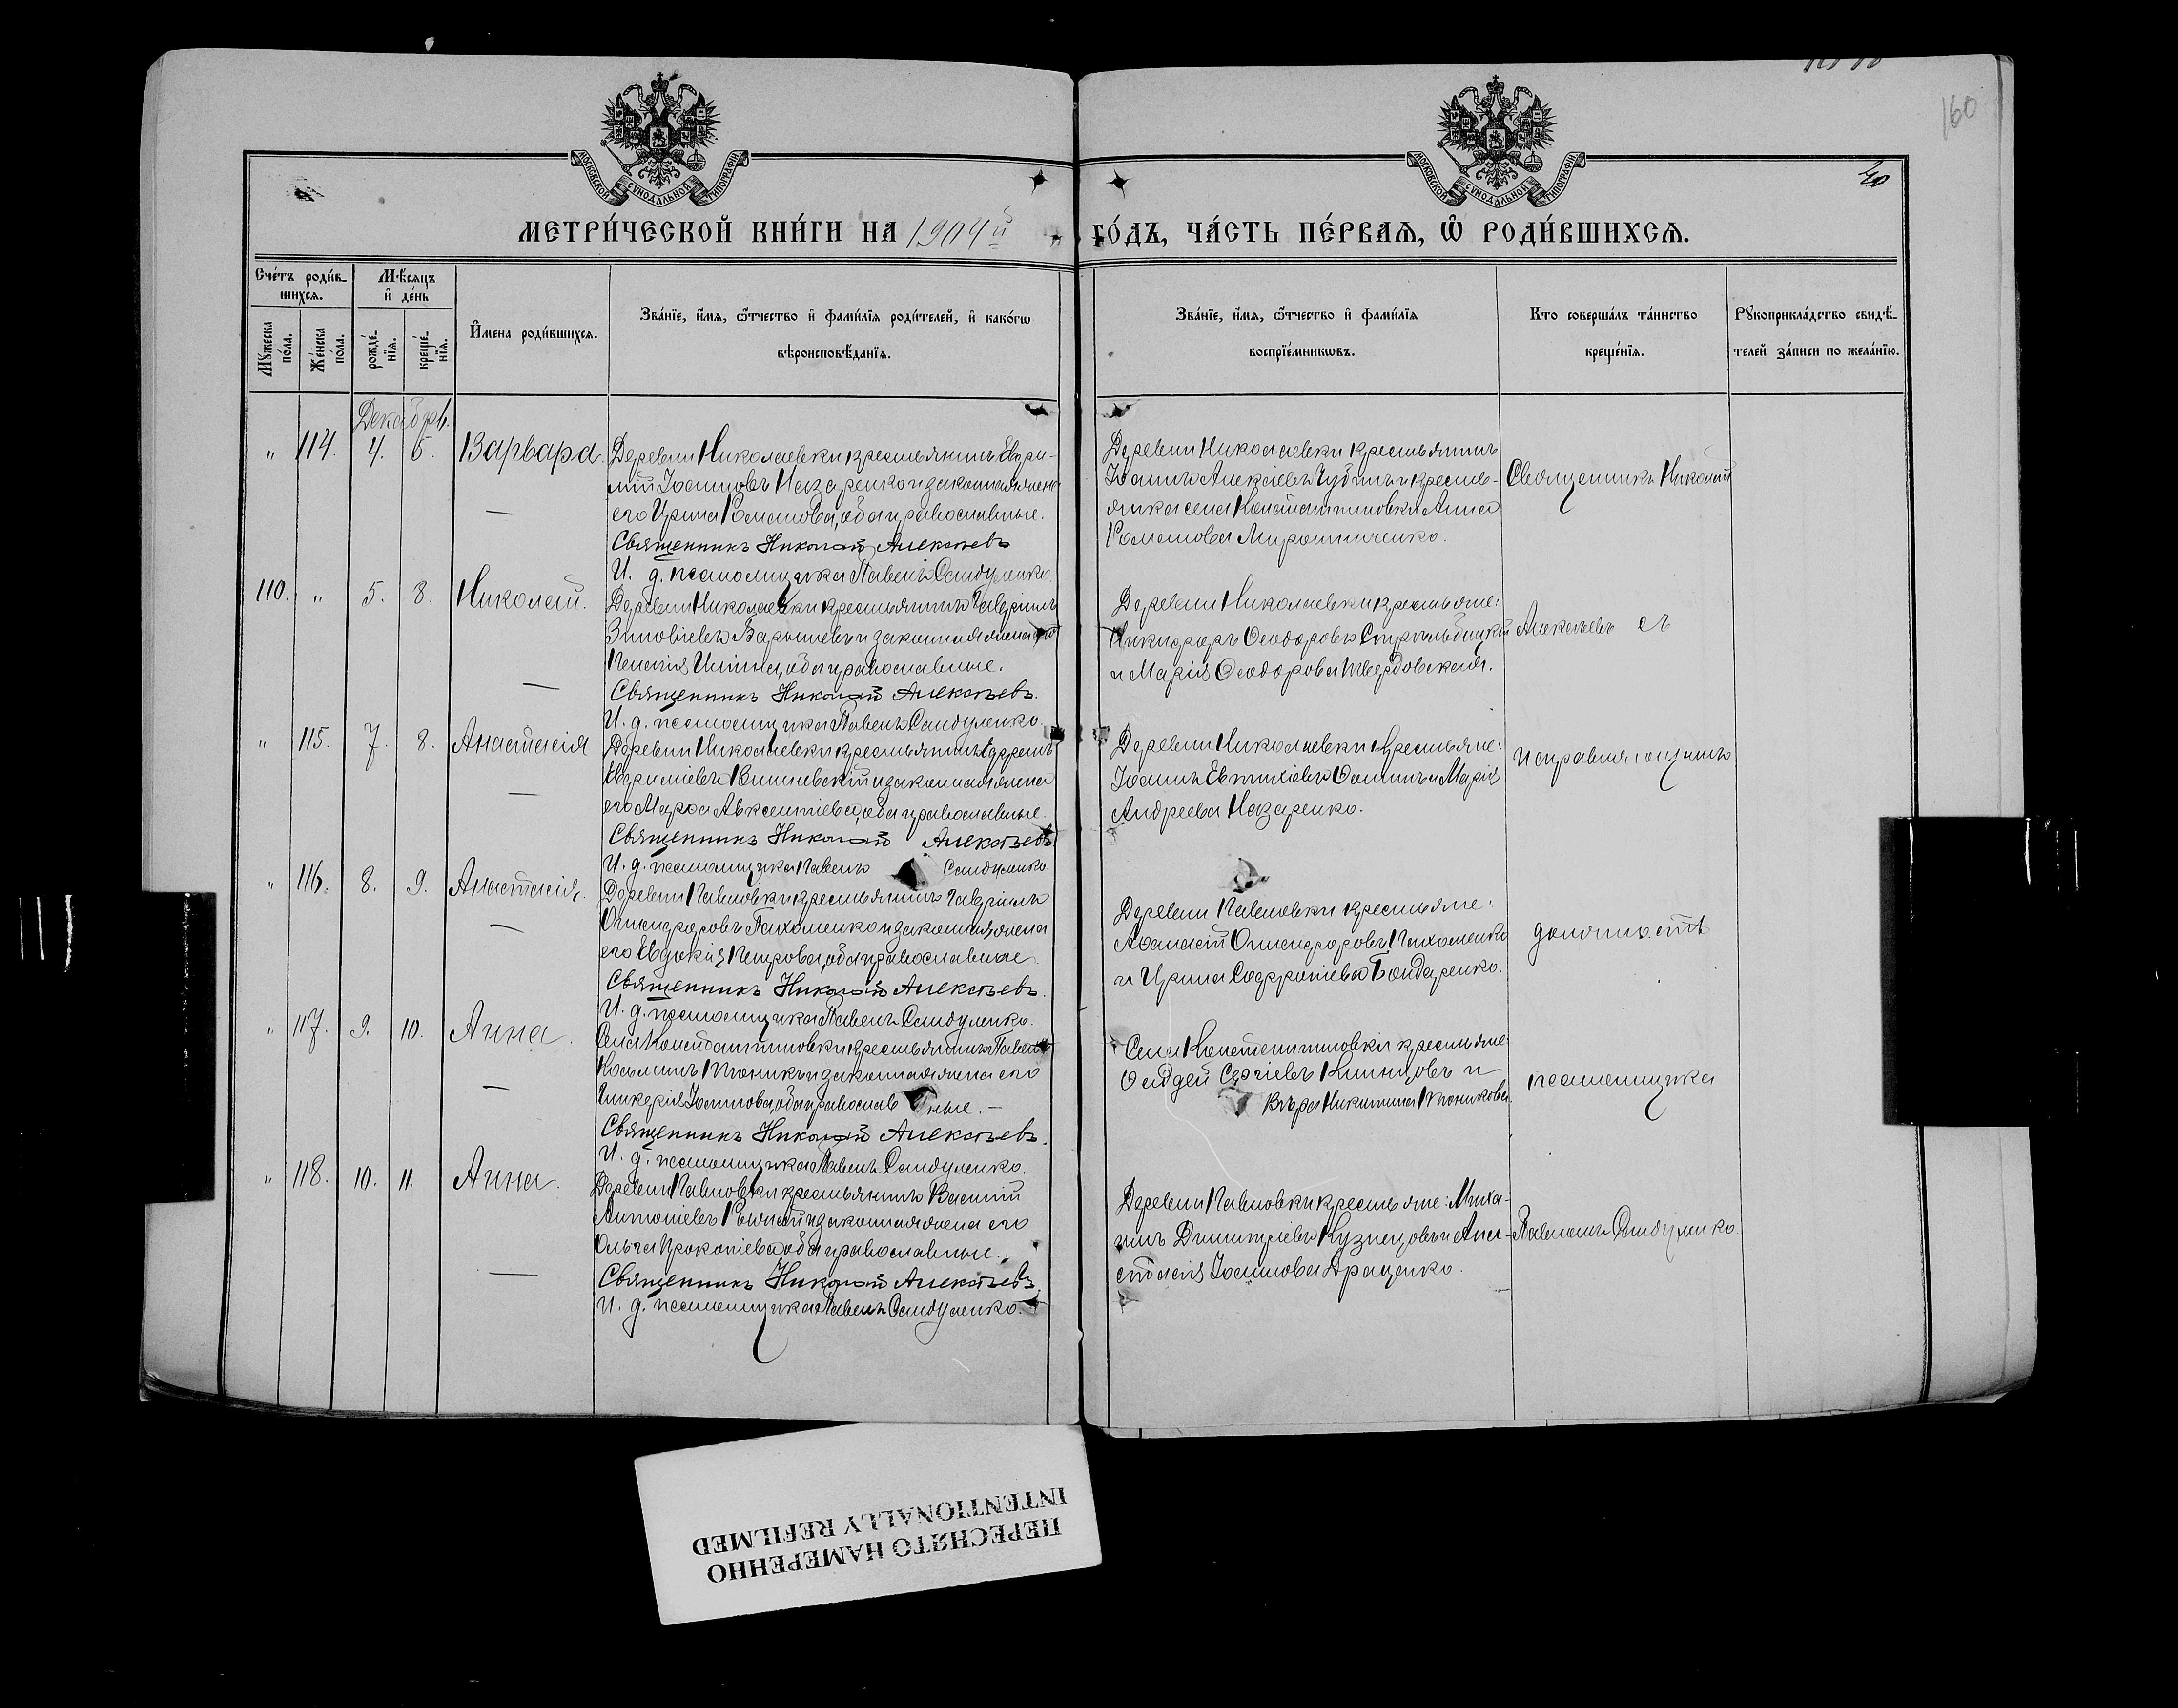 160
40
МОСКОВСКОЙ СУНОДАЛЬНОЙ ТИПОГРАФІИ
МОСКОВСКОЙ СУНОДАЛЬНОЙ ТИПОГРАФІИ
МЕТРИ́ЧЕСКОЙ КНИ́ГИ НА 1904й ГО́ДЪ, ЧА́СТЬ ПЕ́РВАЯ, Ѽ РОДИ́ВШИХСЯ.
Сче́тъ роди́в-
шихся.
Мѣ́сяцъ
и҆ де́нь
Мꙋ́жеска по́ла.
Же́нска по́ла.
рожде́-
нїя.
креще́-
нїя.
И҆мена роди́вшихся.
Зва́нїе, и҆́мя, ѻ҆́тчество и҆ фами́лїя роди́телей, и҆ како́гѡ
вѣроисповѣ́данїя.
Зва́нїе, и҆́мя, ѻ҆́тчество и҆ фами́лїя
воспрїе́мникѡвъ.
Кто соверша́лъ та́инство
креще́нїя.
Рꙋкоприкла́дство свидѣ́-
телей за́писи по жела́нїю.
Декабрь.
" 114. 4. 5. Варвара.
Деревни Николаевки крестьянинъ Евѳи-
мій Іоанновъ Назаренко и законная жена
его Ирина Романова, оба православные.
Священникъ Николай Алексѣевъ
И. д. псаломщика Павелъ Сандуленко.
Деревни Николаевки крестьянинъ
Іоаннъ Алексіевъ Чубинъ и кресть-
янка села Константиновки Анна
Романова Мирошниченко.
Священникъ Николай
110. " 5. 8. Николай.
Деревни Николаевки крестьянинъ Гавріилъ
Зиновіевъ Барышевъ и законная жена его
Ксенія Ильина, оба православные.
Священникъ Николай Алексѣевъ.
И. д. псаломщика Павелъ Сандуленко.
Деревни Николаевки крестьяне:
Никифоръ Ѳеодоровъ Стрѣльбицкій
и Марія Ѳеодорова Твердовская.
Алексѣевъ съ
" 115. 7. 8. Анастасія
Деревни Николаевки крестьянинъ Ефремъ
Евѳиміевъ Вишневскій и законная жена
его Марѳа Авксентіева, оба православные.
Священникъ Николай Алексѣевъ
И. д. псаломщика Павелъ Сандуленко.
Деревни Николаевки крестьяне:
Іоаннъ Евтихіевъ Ѳоминъ и Марія
Андреева Назаренко.
исправляющимъ
" 116. 8. 9. Анастасія.
Деревни Павловки крестьянинъ Гавріилъ
Онисифоровъ Пахоменко и законная жена
его Евдокія Петрова, оба православные.
Священникъ Николай Алексѣевъ.
И. д. псаломщика Павелъ Сандуленко.
Деревни Павловки крестьяне:
Аѳанасій Онисифоровъ Пахоменко
и Ирина Софроніева Бондаренко.
должность
" 117. 9. 10. Анна.
Села Константиновки крестьянинъ Павелъ
Косьминъ и законная жена его
Гликерія Іоаннова, оба православные. —
Священникъ Николай Алексѣевъ.
И. д. псаломщика Павелъ Сандуленко.
Села Константиновки крестьяне:
Ѳаддей Сергіевъ и
Вѣра Никитина
псаломщика
" 118. 10. 11. Анна.
Деревни Павловки крестьянинъ Василій
Антоніевъ и законная жена его
Ольга Прокопіева, оба православные.
Священникъ Николай Алексѣевъ.
И. д. псаломщика Павелъ Сандуленко.
Деревни Павловки крестьяне: Миха-
илъ Димитріевъ Кузнецовъ и Ана-
стасія Іоаннова Драценко.
Павломъ Сандуленко.
ПЕРЕСНЯТО НАМЕРЕННО
INTENTIONALLY REFILMED